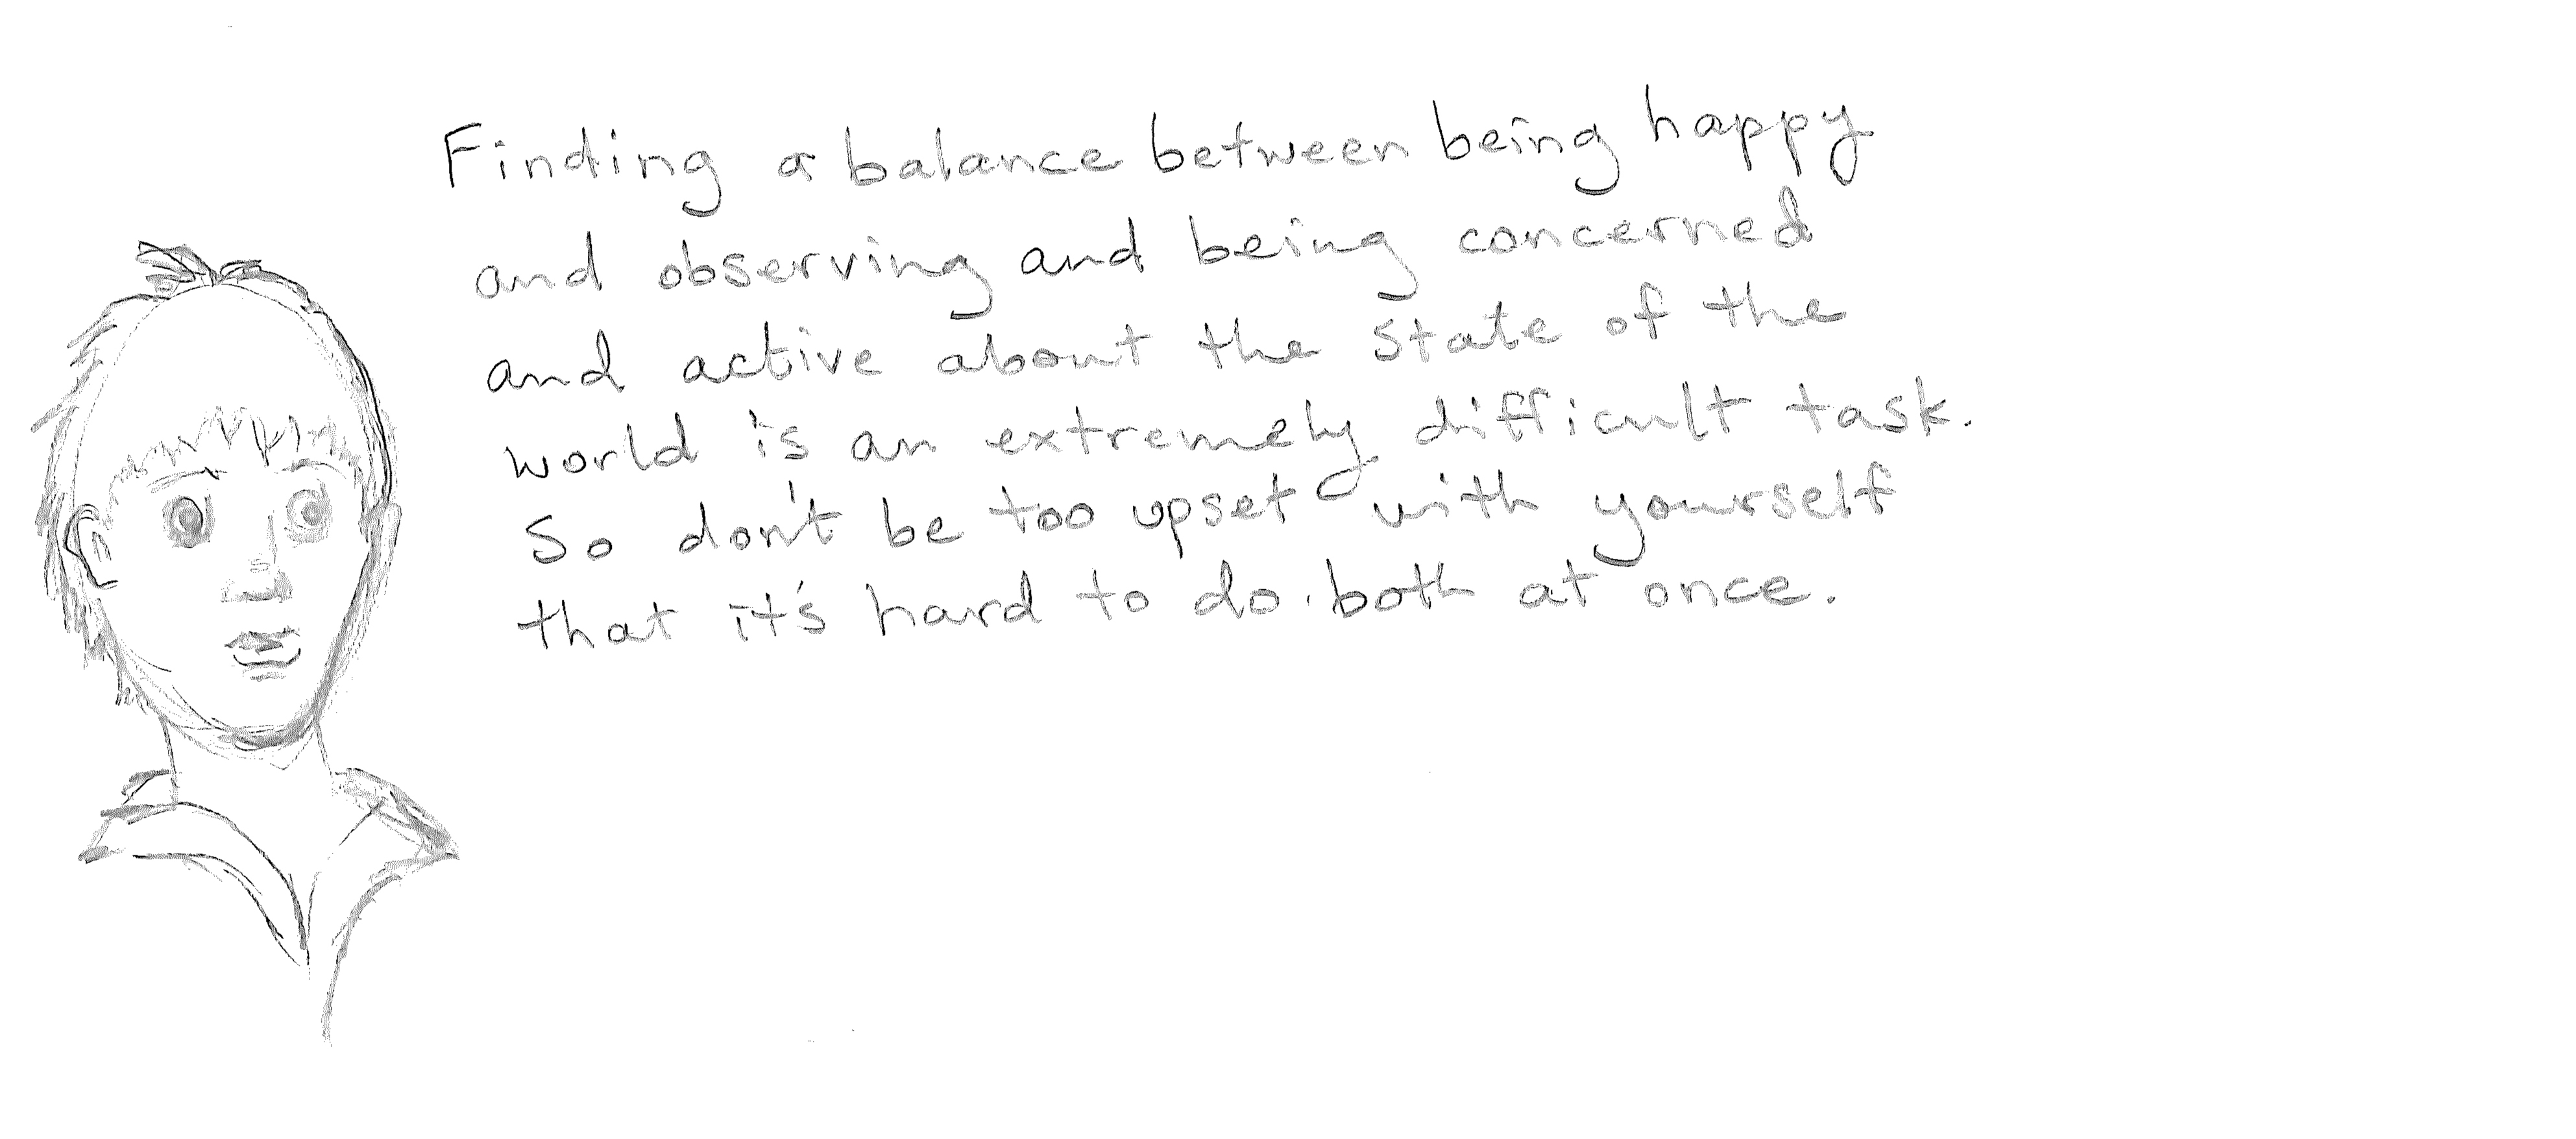 Finding a balance between being happy
and observing and being concerned
and active about the state of the
world is an extremely difficult task.
So don't be too upset with yourself
that it's hard to do both at once.